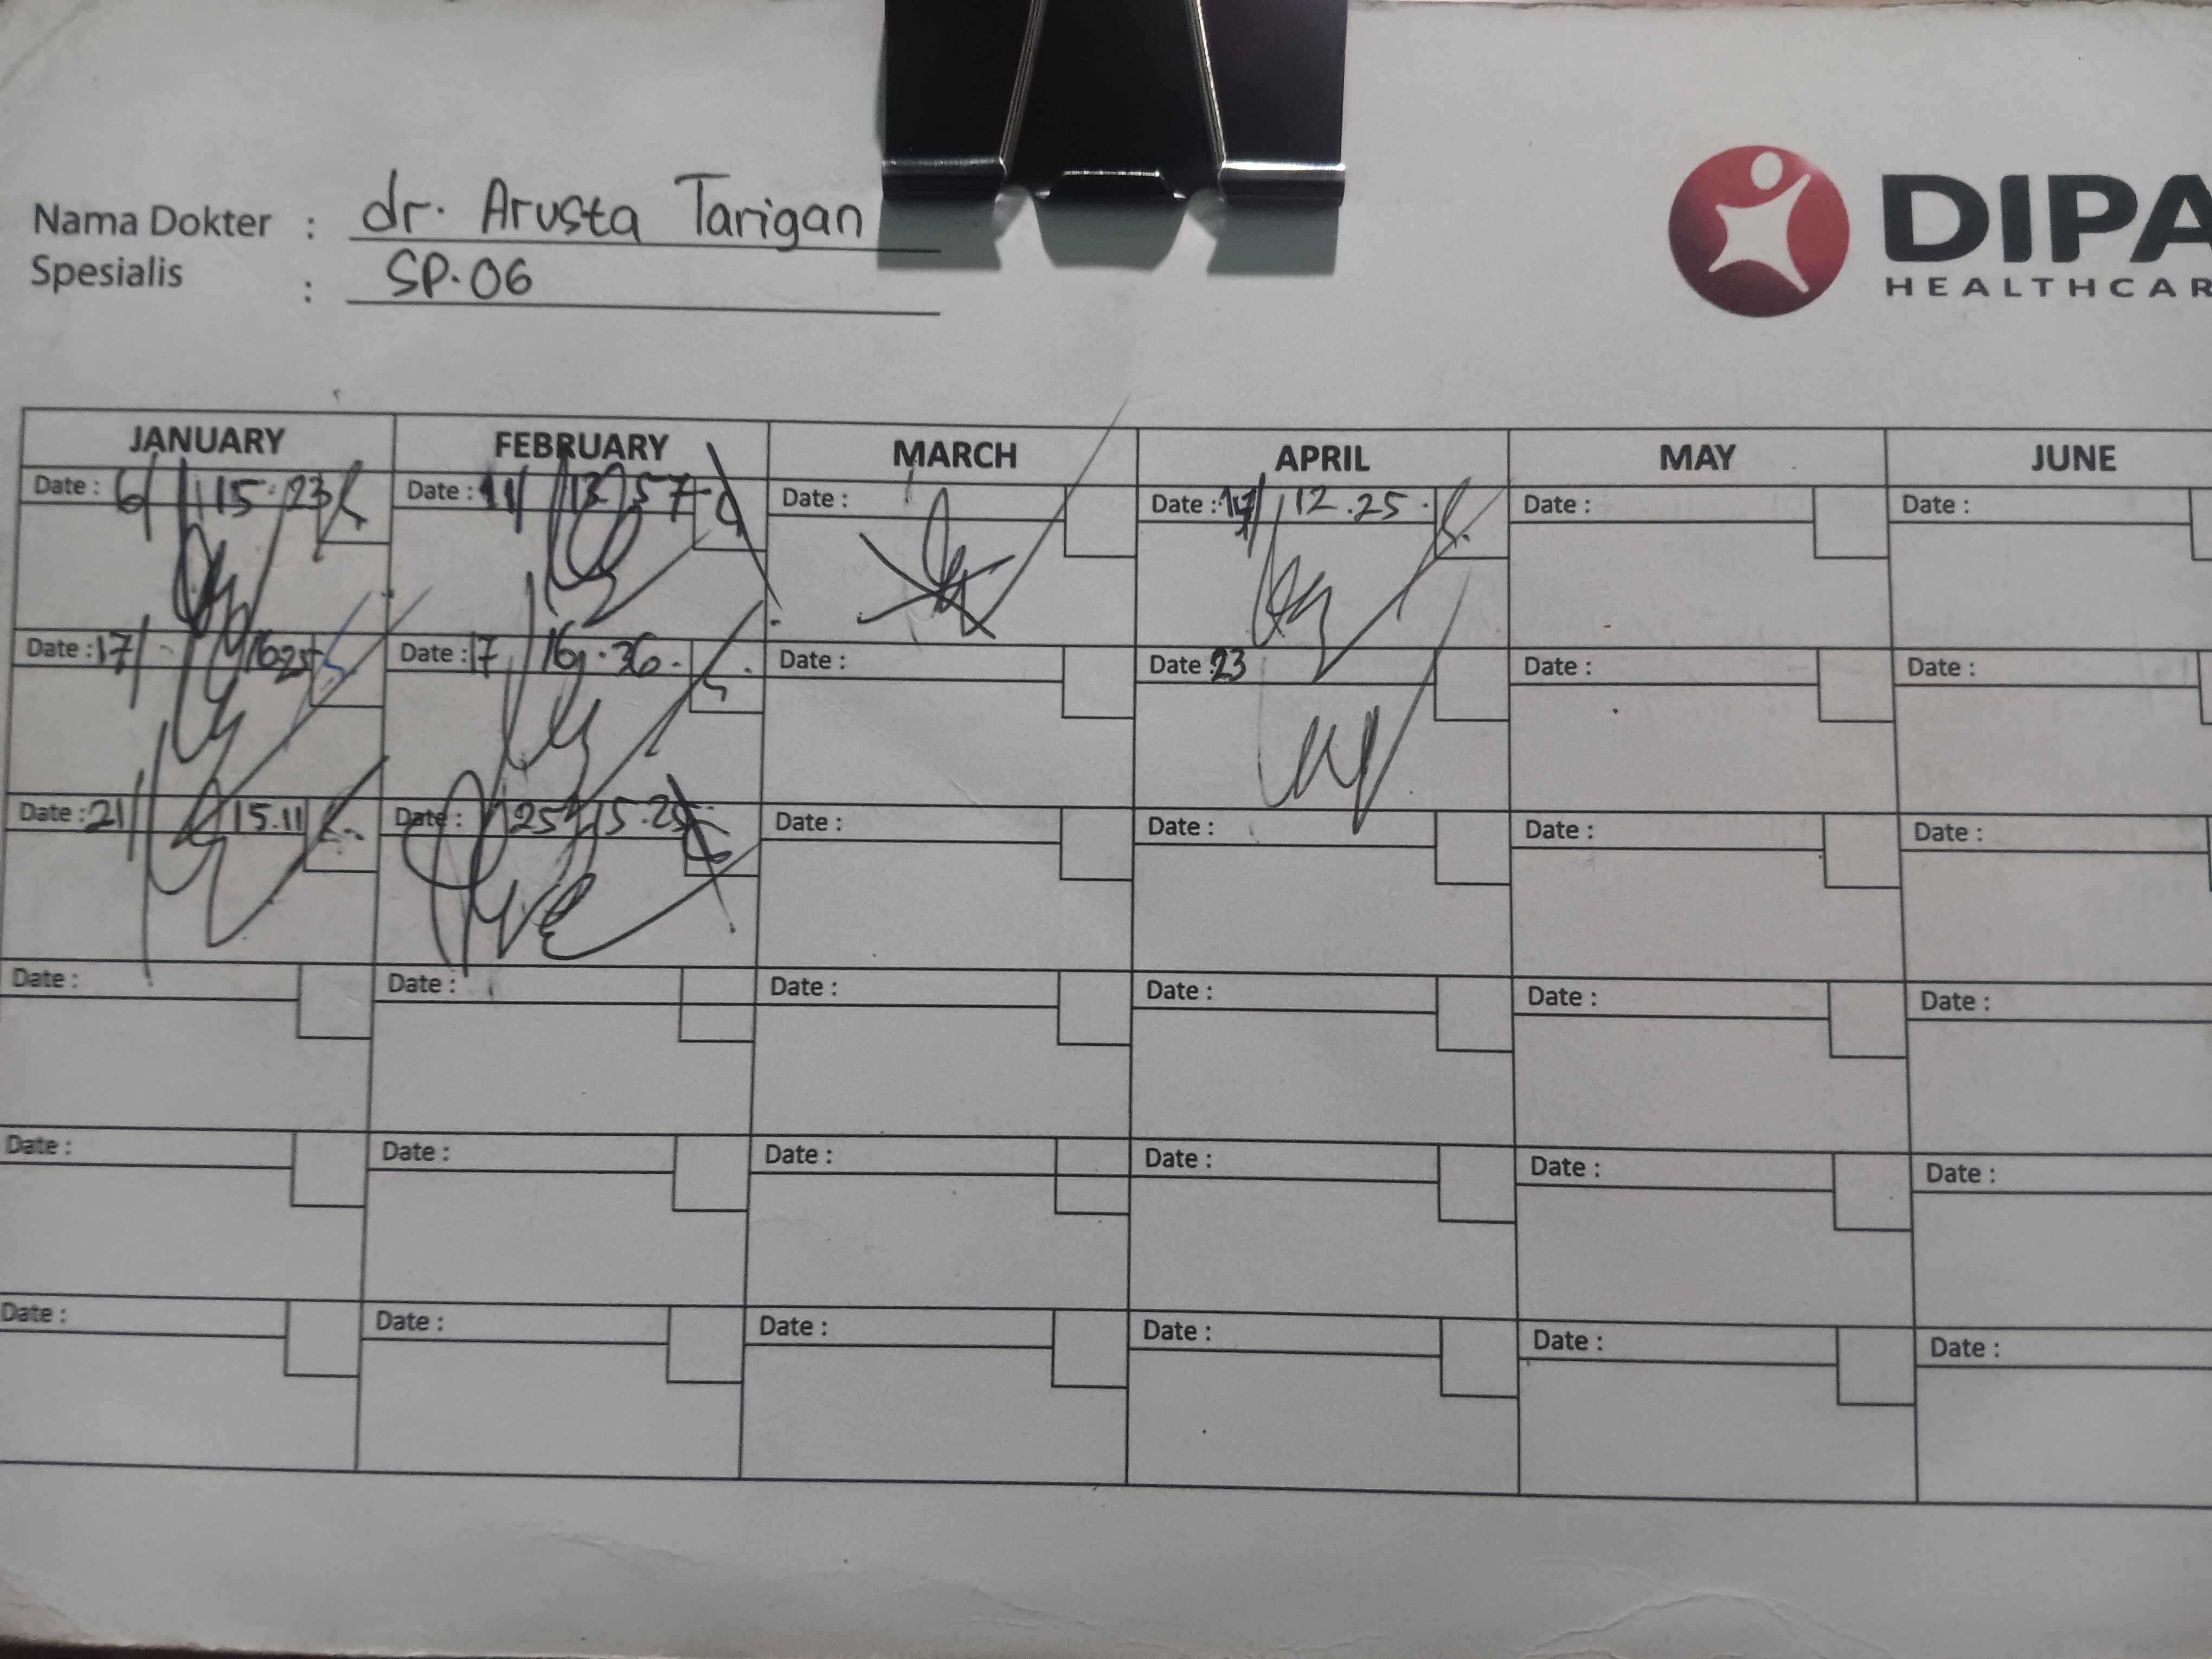 Nama Dokter : dr. Arusta Tarigan
Spesialis : SP.OG
DIPA
HEALTHCAR
JANUARY FEBRUARY MARCH APRIL MAY JUNE
Date : 6/ 15.23 Date : 11/ 13.57 Date : Date : 12.25 Date : Date :
Date : 17/ 16.25 Date : 17 16.36 Date : Date : 23 Date : Date :
Date : 21/ 15.11 Date : 25 15.25 Date : Date : Date : Date :
Date : Date : Date : Date : Date : Date :
Date : Date : Date : Date : Date : Date :
Date : Date : Date : Date : Date : Date :